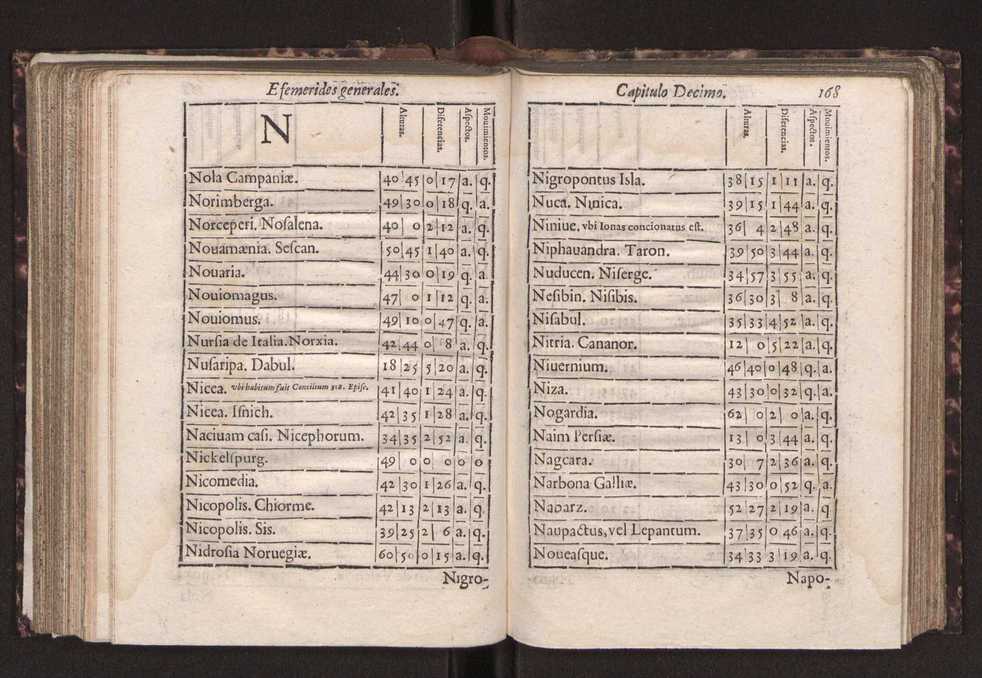 Efemerides generales.
N
Alturas.
Diferencias.
Aspectos.
Mouimientos.
Nola Campaniæ. 40 45 0 17 a. q.
Norimberga. 49 30 0 18 q. a.
Norceperi. Nosalena. 40 0 2 12 a. q.
Nouamænia. Sescan. 50 45 1 40 a. q.
Nouaria. 44 30 0 19 q. a.
Nouiomagus. 47 0 1 12 q. a.
Nouiomus. 49 10 0 47 q. a.
Nursia de Italia. Norxia. 42 44 0 8 a. q.
Nusaripa. Dabul. 18 25 5 20 a. q.
Nicea. vbi habitum fuit Concilium 318. Episc. 41 40 1 24 a. q.
Nicea. Isnich. 42 35 1 28 a. q.
Naciuam casi. Nicephorum. 34 35 2 52 a. q.
Nickelspurg. 49 0 0 0 0 0
Nicomedia. 42 30 1 26 a. q.
Nicopolis. Chiorme. 42 13 2 13 a. q.
Nicopolis. Sis. 39 25 2 6 a. q.
Nidrosia Noruegiæ. 60 50 0 15 a. q.
Nigro-
Capitulo Decimo. 168
Alturas.
Diferencias.
Aspectos.
Mouimientos.
Nigropontus Isla. 38 15 1 11 a. q.
Nuca. Ninica. 39 15 1 44 a. q.
Niniue. vbi Ionas concionatus est. 36 4 2 48 a. q.
Niphauandra. Taron. 39 50 3 44 a. q.
Nuducen. Niserge. 34 57 3 55 a. q.
Nesibin. Nisibis. 36 30 3 8 a. q.
Nisabul. 35 33 4 52 a. q.
Nitria. Cananor. 12 0 5 22 a. q.
Niuernium. 46 40 0 48 q. a.
Niza. 43 30 0 32 q. a.
Nogardia. 62 0 2 0 a. q.
Naim Persiæ. 13 0 3 44 a. q.
Nagcara. 30 7 2 36 a. q.
Narbona Galliæ. 43 30 0 52 q. a.
Nabarz. 52 27 2 19 a. q
Naupactus, vel Lepantum. 37 35 0 46 a. q.
Noueasque. 34 33 3 19 a. q.
Napo-